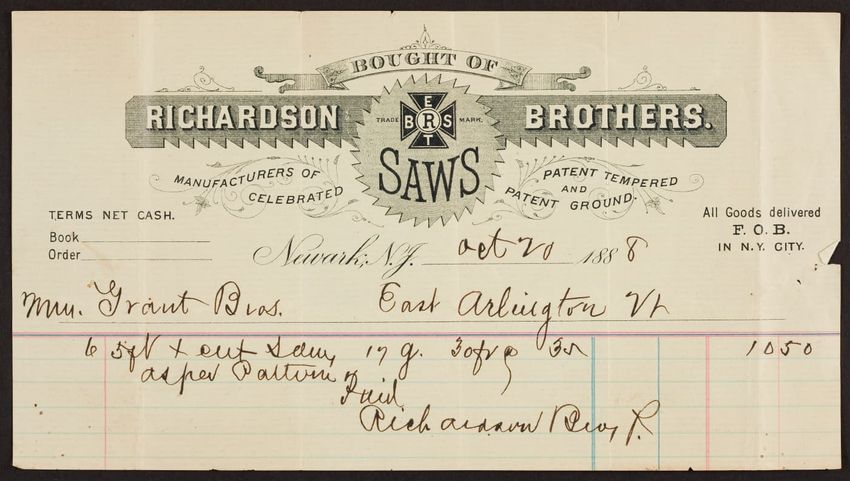 BOUGHT OF
RICHARDSON BROTHERS.
TRADE MARK.
E
B R S
T
SAWS
MANUFACTURERS OF CELEBRATED
PATENT TEMPERED AND PATENT GROUND.
TERMS NET CASH.
Book
Order
All Goods delivered
F. O. B.
IN N.Y. CITY.
Newark, N.J. Oct 20 1888
Grant Bros. East Arlington Vt
6 5 ft X cut Saws 17 g. 35 10 50
as per Pattern
Paid
Richardson Bros